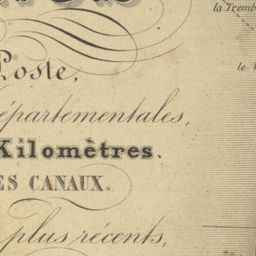 la Tremb
Poste,
épartementales,
Kilomètres.
ES CANAUX.
plus récents,